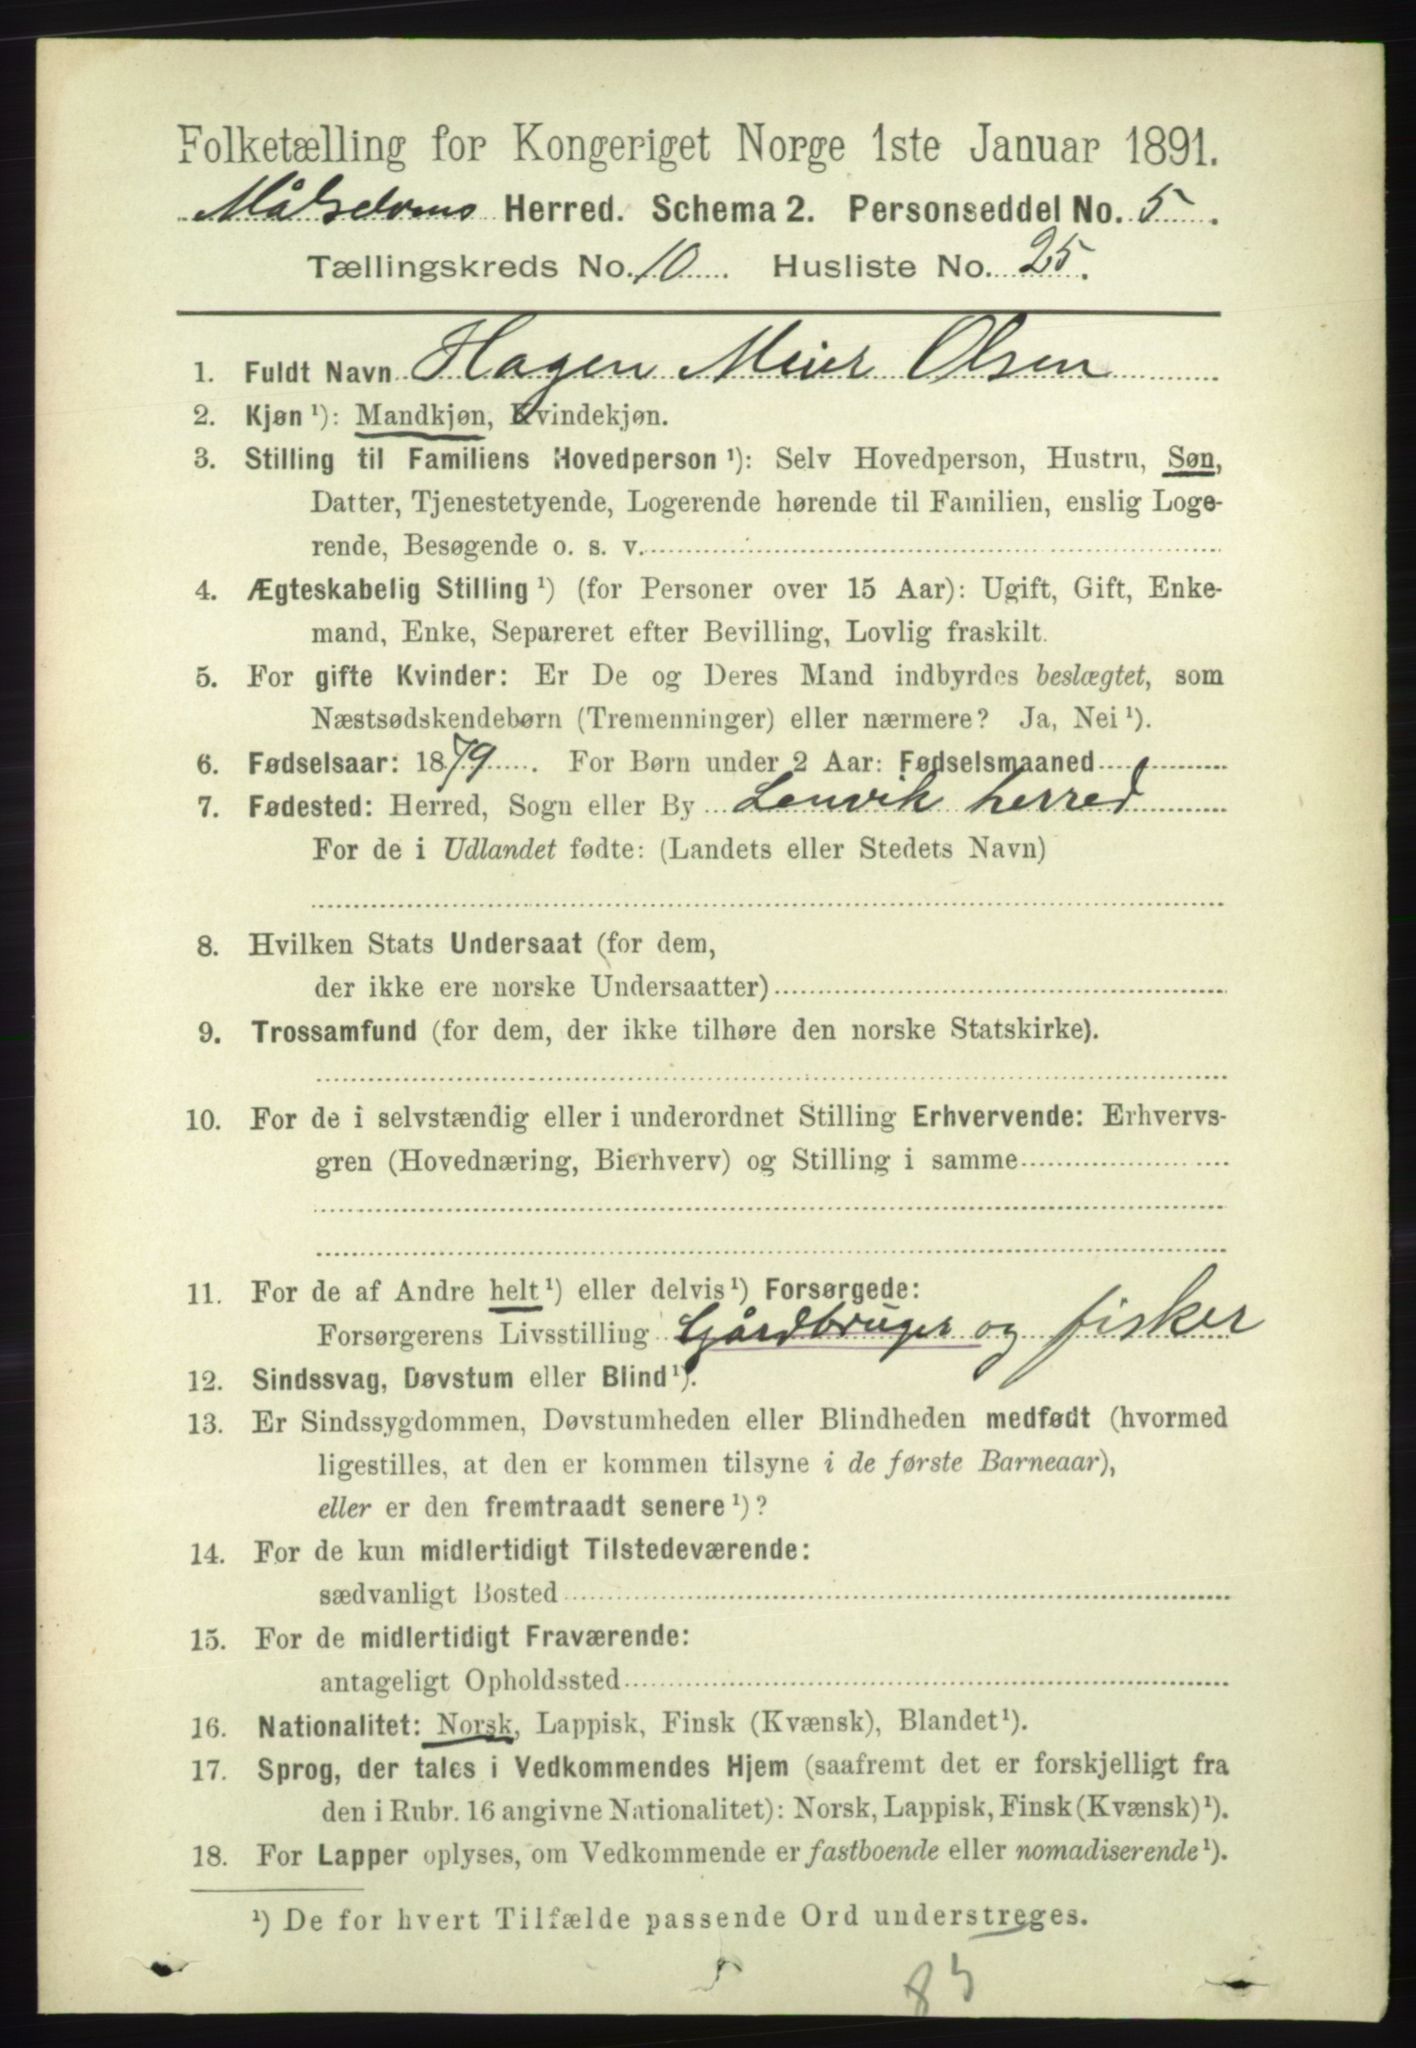 Folketælling for Kongeriget Norge 1ste Januar 1891.
Målselvens Herred. Schema 2. Personseddel No. 5.
Tællingskreds No. 10. Husliste No. 25.
1. Fuldt Navn Hagen Meier Olsen
2. Kjøn ¹): Mandkjøn, Kvindekjøn.
3. Stilling til Familiens Hovedperson ¹): Selv Hovedperson, Hustru, Søn,
Datter, Tjenestetyende, Logerende hørende til Familien, enslig Loge-
rende, Besøgende o. s. v.
4. Ægteskabelig Stilling ¹) (for Personer over 15 Aar): Ugift, Gift, Enke-
mand, Enke, Separeret efter Bevilling, Lovlig fraskilt.
5. For gifte Kvinder: Er De og Deres Mand indbyrdes beslægtet, som
Næstsødskendebørn (Tremenninger) eller nærmere? Ja, Nei ¹).
6. Fødselsaar: 1879. For Børn under 2 Aar: Fødselsmaaned
7. Fødested: Herred, Sogn eller By Lenvik herred
For de i Udlandet fødte: (Landets eller Stedets Navn)
8. Hvilken Stats Undersaat (for dem,
der ikke ere norske Undersaatter)
9. Trossamfund (for dem, der ikke tilhøre den norske Statskirke).
10. For de i selvstændig eller i underordnet Stilling Erhvervende: Erhvervs-
gren (Hovednæring, Bierhverv) og Stilling i samme
11. For de af Andre helt ¹) eller delvis ¹) Forsørgede:
Forsørgerens Livsstilling Gårdbruger og fisker
12. Sindssvag, Døvstum eller Blind ¹).
13. Er Sindssygdommen, Døvstumheden eller Blindheden medfødt (hvormed
ligestilles, at den er kommen tilsyne i de første Barneaar),
eller er den fremtraadt senere ¹)?
14. For de kun midlertidigt Tilstedeværende:
sædvanligt Bosted
15. For de midlertidigt Fraværende:
antageligt Opholdssted
16. Nationalitet: Norsk, Lappisk, Finsk (Kvænsk), Blandet ¹).
17. Sprog, der tales i Vedkommendes Hjem (saafremt det er forskjelligt fra
den i Rubr. 16 angivne Nationalitet): Norsk, Lappisk, Finsk (Kvænsk) ¹).
18. For Lapper oplyses, om Vedkommende er fastboende eller nomadiserende ¹).
¹) De for hvert Tilfælde passende Ord understreges.